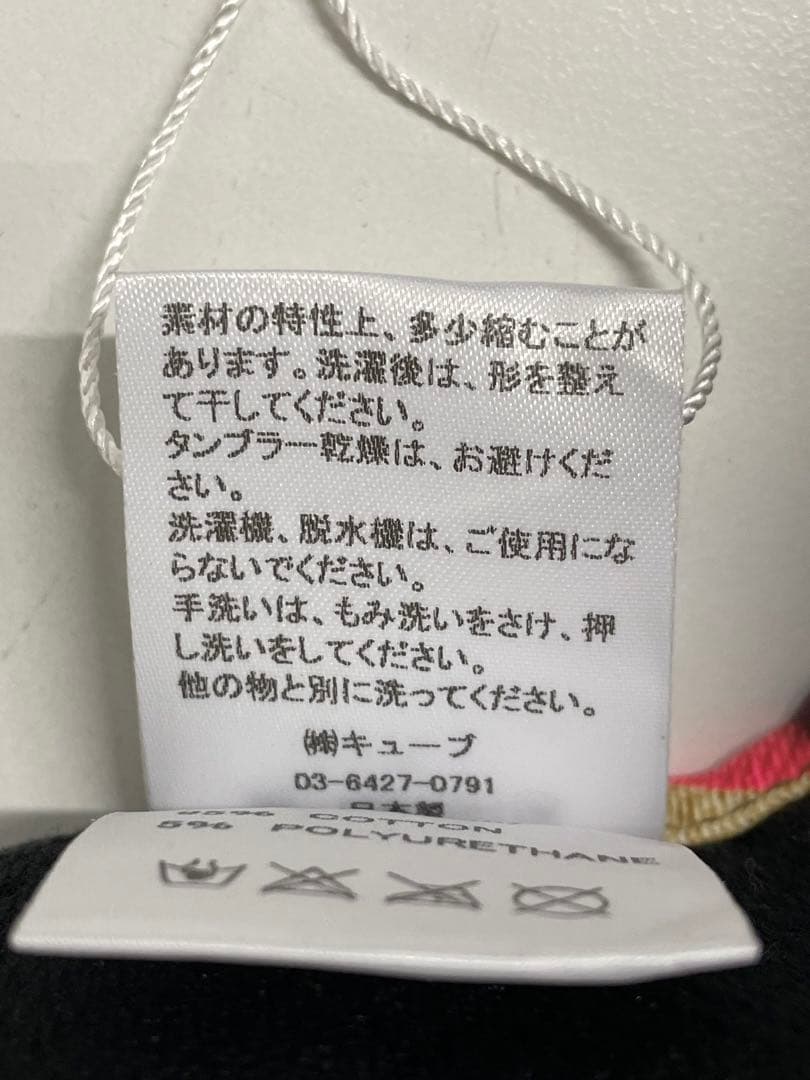 素材の特性上、多少縮むことが
あります。洗濯後は、形を整え
て干してください。
タンブラー乾燥は、お避けくだ
さい。
洗濯機、脱水機は、ご使用にな
らないでください。
手洗いは、もみ洗いをさけ、押
し洗いをしてください。
他の物と別に洗ってください。
㈱キューブ
03-6427-0791
日本製
95% COTTON
5% POLYURETHANE